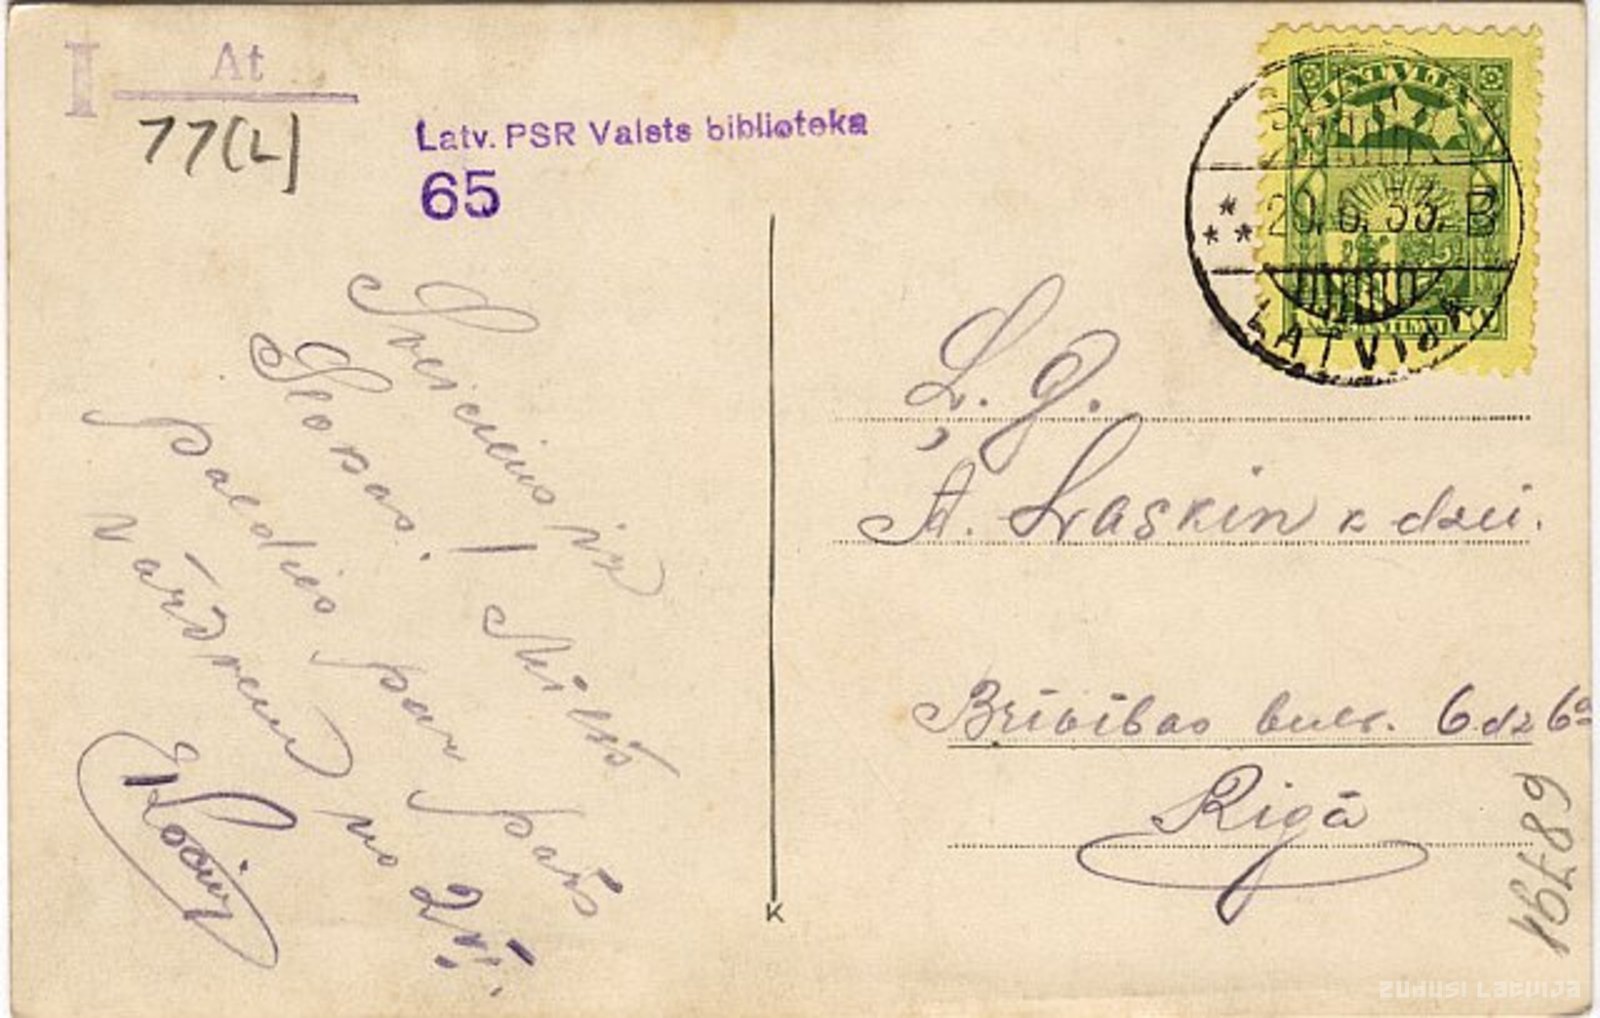 I At
77(L)
Latv. PSR Valsts biblioteka
65
Sveiciens iz
Slokas! Mīļš
paldies par pašs
vārdiem no 2
LATVIJA
20.6.33. B
LATVIJA
Ļ. G.
A. Laskin k dzei.
Brīvības bulv. 6 dz 6a
Rīgā
K
68791
zudusi Latvija